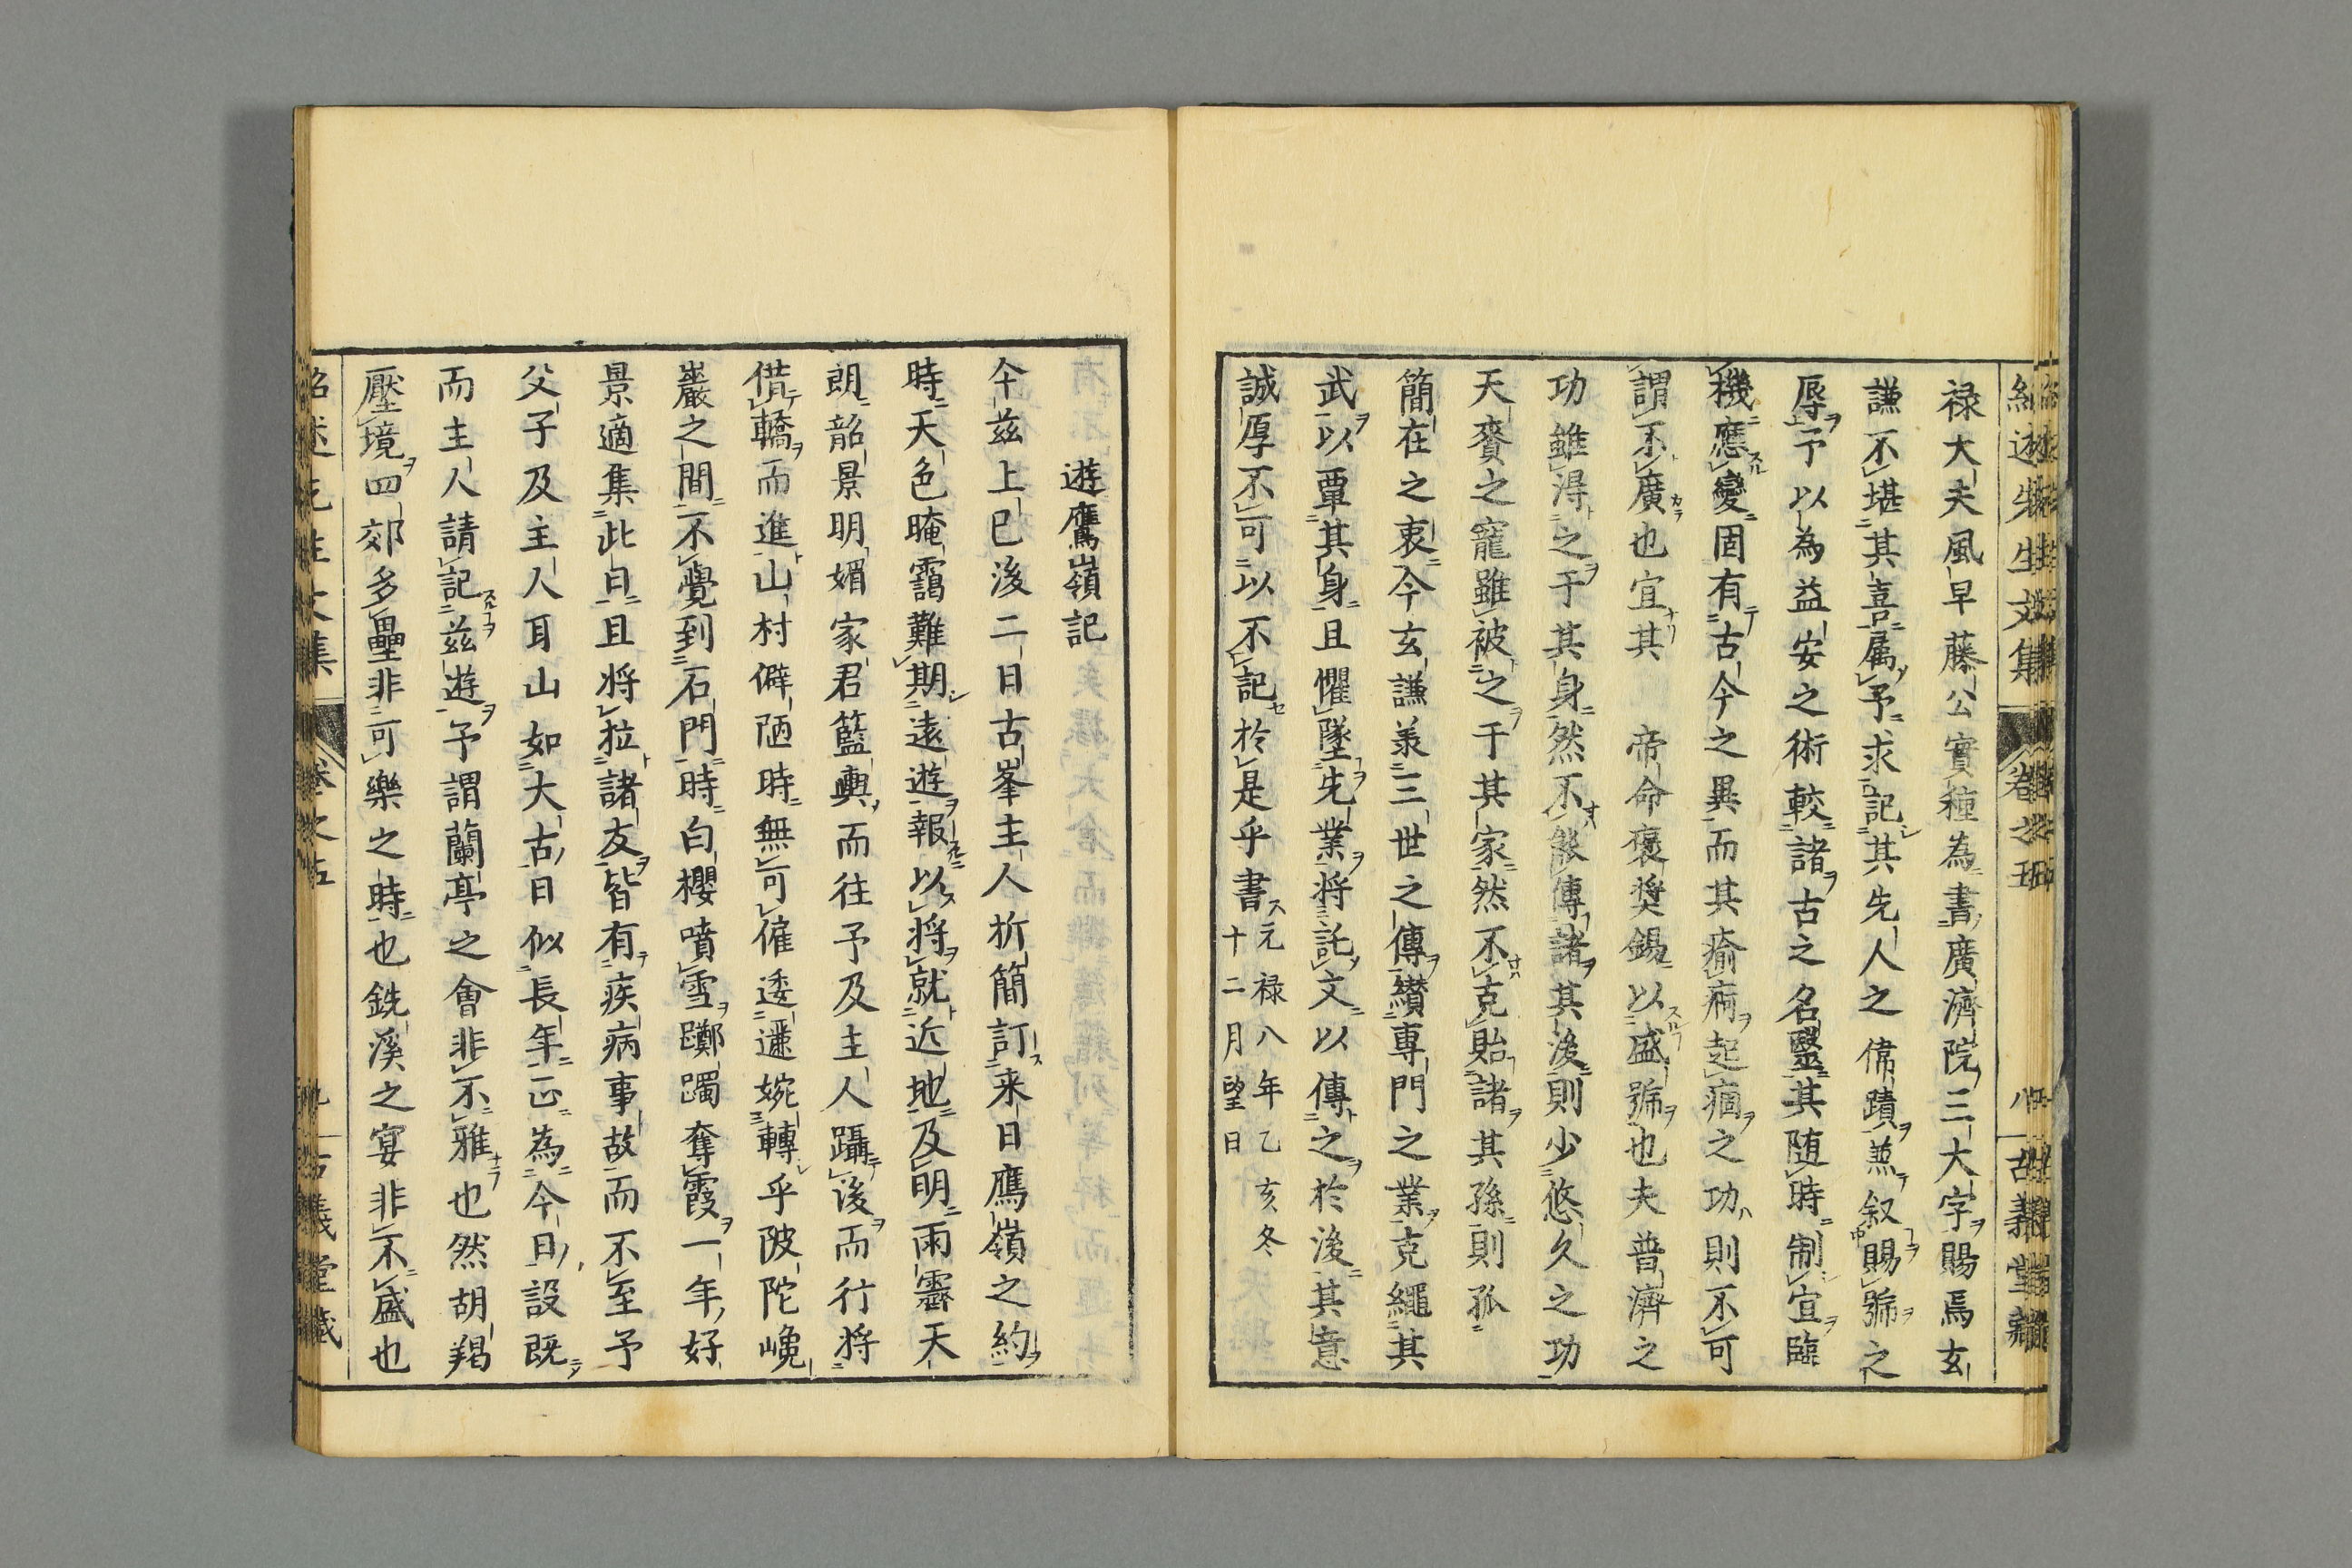 祿大夫風早藤公實種為書廣濟院三大字賜焉玄
謙不堪其喜属予求記其先人之偉蹟兼叙賜號之
辱予以為益安之術較諸古之名醫其随時制宜臨
機應變固有古今之異而其瘉病起痼之功則不可
謂不廣也宜其　帝命褒奬錫以盛號也夫普濟之
功雖得之于其身然不能傳諸其後則少悠久之功
天賚之寵雖被之于其家然不克貽諸其孫則孤
簡在之衷今玄謙羕三世之傳纘專門之業克繩其
武以覃其身且懼墜先業将託文以傳之於後其意
誠厚不可以不記於是乎書元禄八年乙亥冬
十二月望日
遊鷹嶺記
今茲上巳後二日古峯主人折簡訂来日鷹嶺之約
時天色晻靄難期遠遊報以将就近地及明雨霽天
朗韶景明媚家君籃輿而往予及主人躡後而行将
借轎而進山村僻陋時無可僱逶邐婉轉乎陂陀嵼
巖之間不覺到石門時白櫻噴雪躑躅奪霞一年好
景適集此日且将拉諸友皆有疾病事故而不至予
父子及主人耳山如大古日似長年正為今日設既
而主人請記茲遊予謂蘭亭之會非不雅也然胡羯
壓境四郊多壘非可樂之時也銑溪之宴非不盛也
紹述先生文集
卷之五
古義堂藏